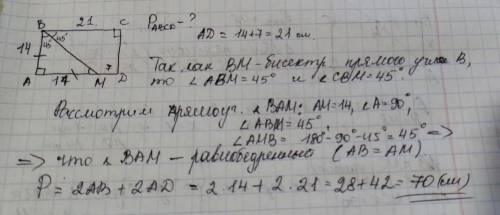 B 21 C
45° 45°
14
7
A 14 M D
P ABCD - ?
AD = 14+7 = 21 см.
Так как BM - бисектр. прямого угла B,
то ∠ABM = 45° и ∠CBM = 45°.
Рассмотрим прямоуг. ∆ BAM: AM = 14, ∠A = 90°,
∠ABM = 45°
∠AMB = 180° - 90° - 45° = 45° =>
=> что ∆ BAM - равнобедренный (AB = AM)
P = 2AB + 2AD = 2·14 + 2·21 = 28 + 42 = 70 (см)